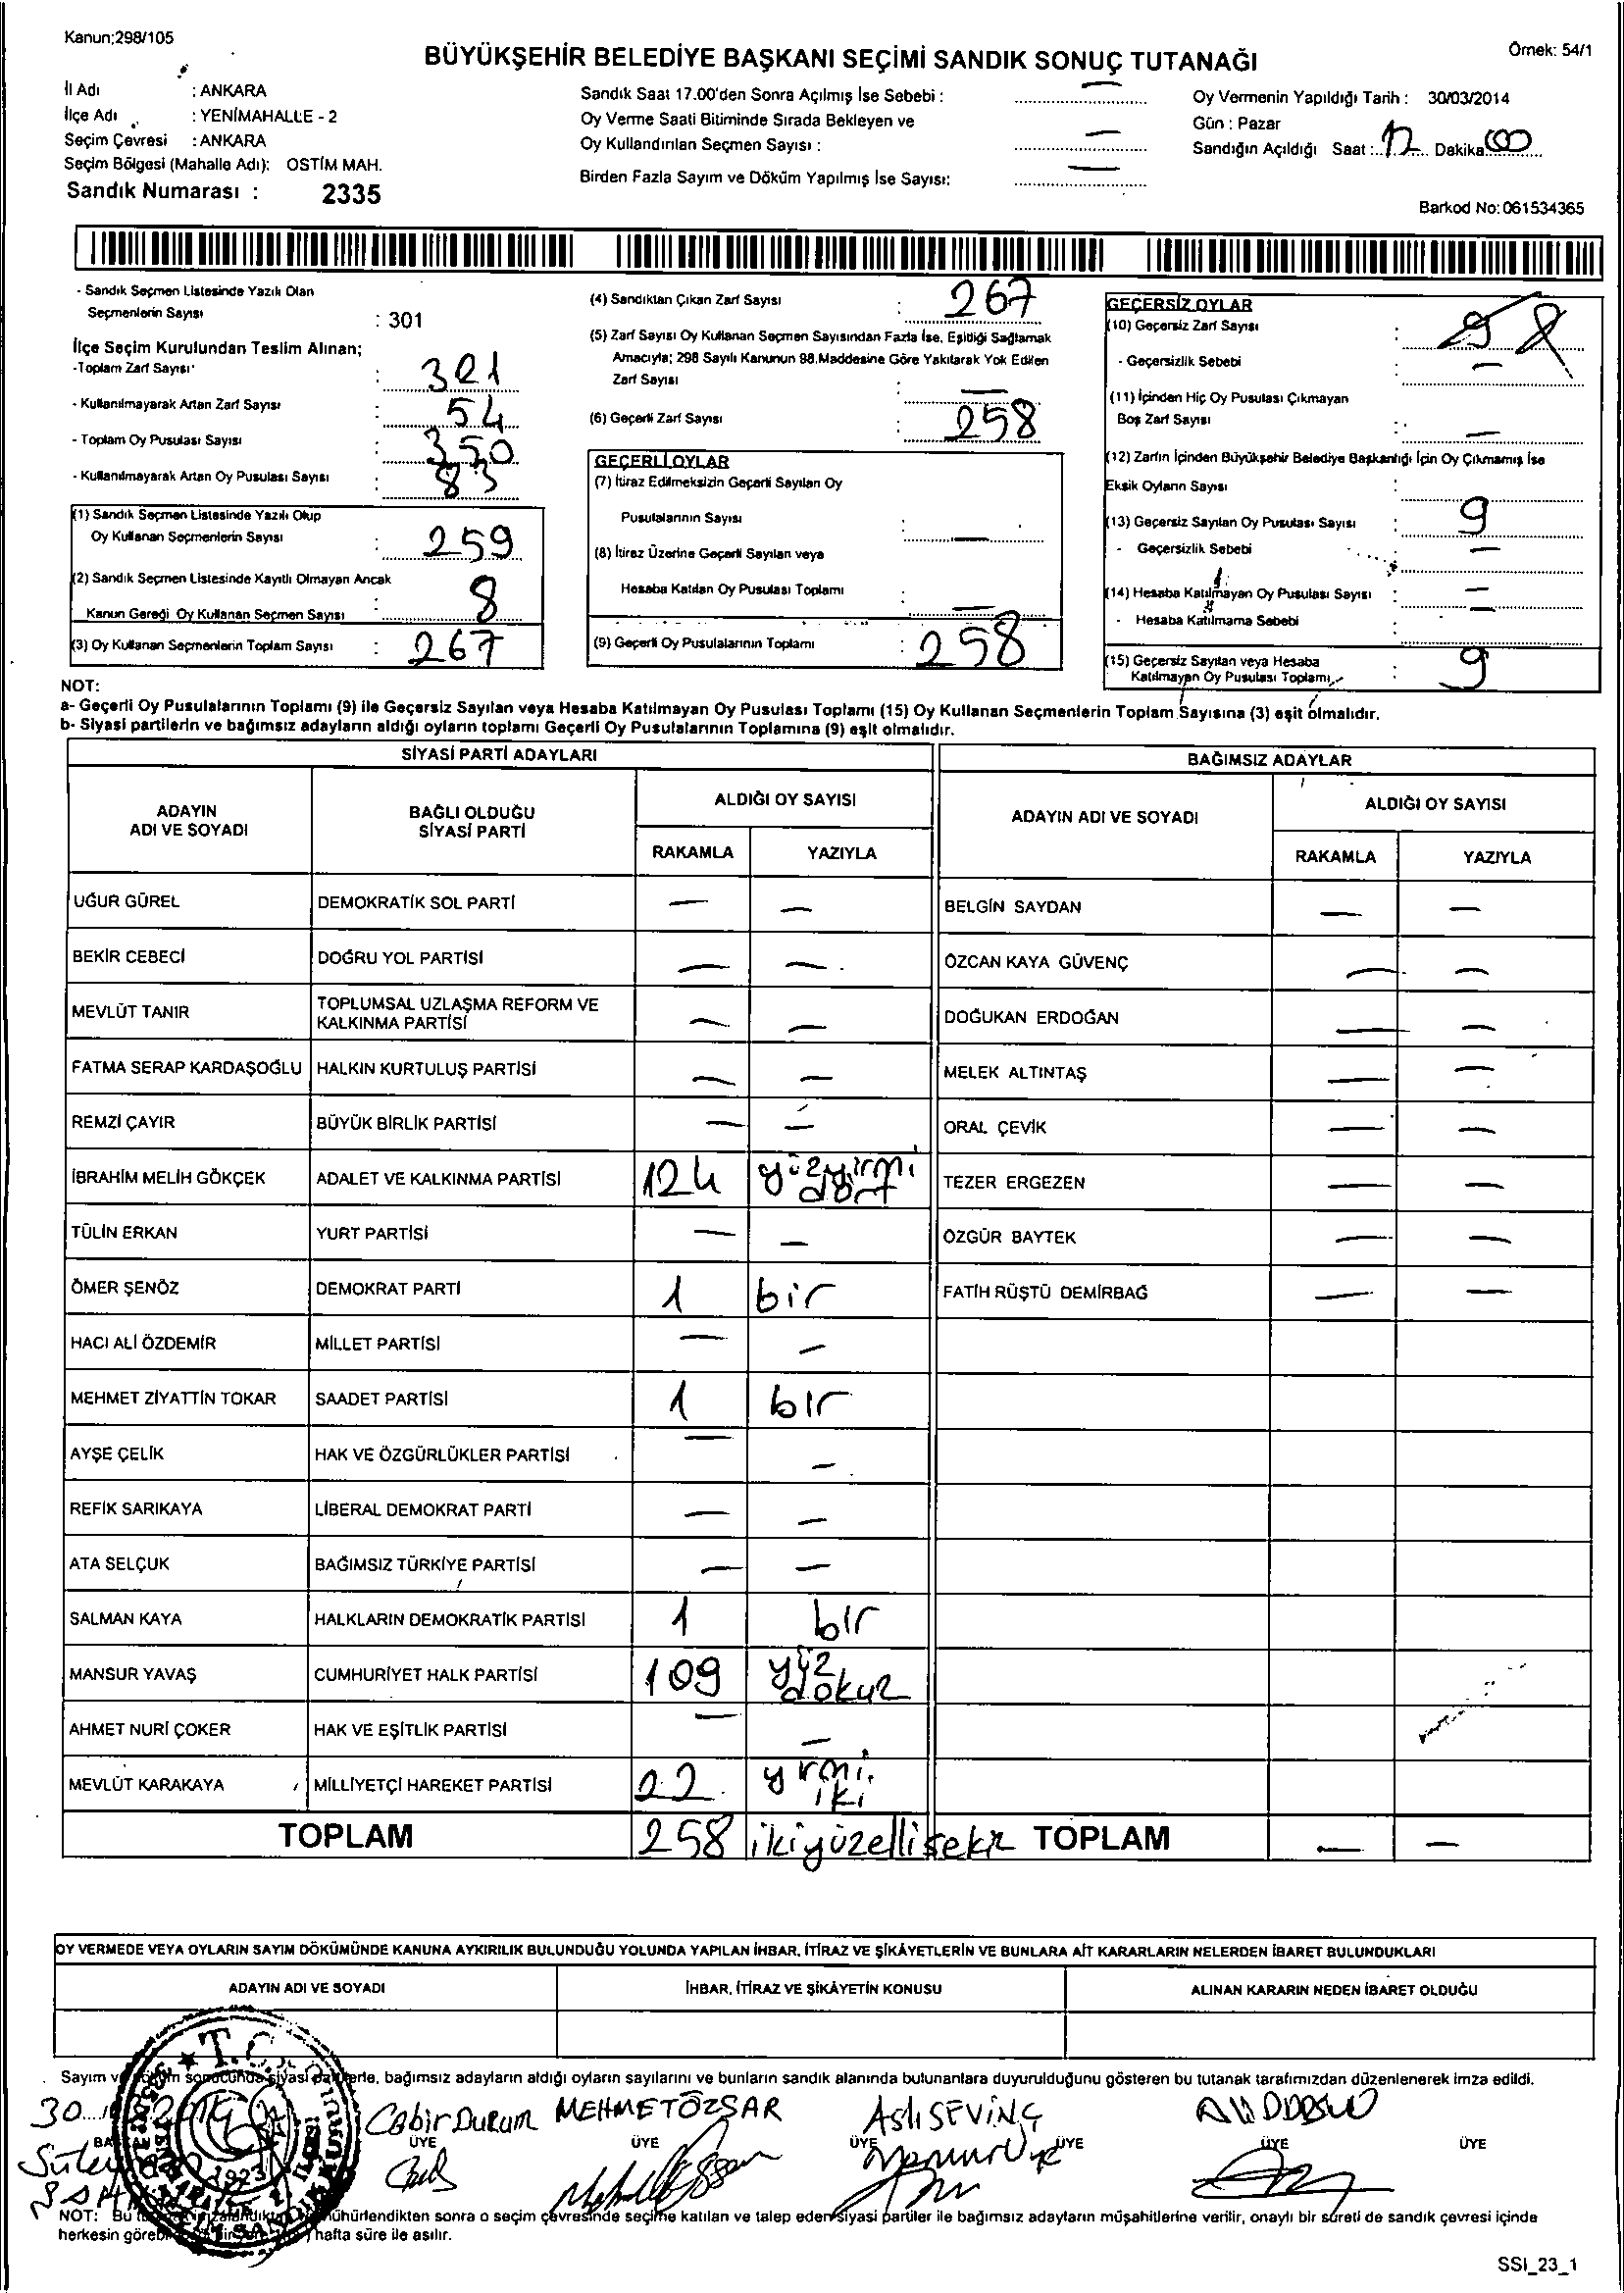 Kanun;298/105
Örnek: 54/1
BÜYÜKŞEHİR BELEDİYE BAŞKANI SEÇİMİ SANDIK SONUÇ TUTANAĞI
İl Adı : ANKARA
İlçe Adı : YENİMAHALLE - 2
Seçim Çevresi : ANKARA
Seçim Bölgesi (Mahalle Adı): OSTİM MAH.
Sandık Numarası : 2335
Sandık Saat 17.00'den Sonra Açılmış İse Sebebi : —
Oy Verme Saati Bitiminde Sırada Bekleyen ve
Oy Kullandırılan Seçmen Sayısı : —
Birden Fazla Sayım ve Döküm Yapılmış İse Sayısı: —
Oy Vermenin Yapıldığı Tarih : 30/03/2014
Gün : Pazar
Sandığın Açıldığı Saat :..17.... Dakika..00
Barkod No:061534365
- Sandık Seçmen Listesinde Yazılı Olan
Seçmenlerin Sayısı : 301
İlçe Seçim Kurulundan Teslim Alınan;
-Toplam Zarf Sayısı :
- Kullanılmayarak Artan Zarf Sayısı : 54
- Toplam Oy Pusulası Sayısı : 350
- Kullanılmayarak Artan Oy Pusulası Sayısı : 83
(1) Sandık Seçmen Listesinde Yazılı Olup
Oy Kullanan Seçmenlerin Sayısı : 259
(2) Sandık Seçmen Listesinde Kayıtlı Olmayan Ancak
Kanun Gereği Oy Kullanan Seçmen Sayısı : 8
(3) Oy Kullanan Seçmenlerin Toplam Sayısı : 267
(4) Sandıktan Çıkan Zarf Sayısı : 267
(5) Zarf Sayısı Oy Kullanan Seçmen Sayısından Fazla İse, Eşitliği Sağlamak
Amacıyla; 298 Sayılı Kanunun 98.Maddesine Göre Yakılarak Yok Edilen
Zarf Sayısı : —
(6) Geçerli Zarf Sayısı : 258
GEÇERLİ OYLAR
(7) İtiraz Edilmeksizin Geçerli Sayılan Oy
Pusulalarının Sayısı : —
(8) İtiraz Üzerine Geçerli Sayılan veya
Hesaba Katılan Oy Pusulası Toplamı : —
(9) Geçerli Oy Pusulalarının Toplamı : 258
GEÇERSİZ OYLAR
(10) Geçersiz Zarf Sayısı : 9
- Geçersizlik Sebebi : —
(11) İçinden Hiç Oy Pusulası Çıkmayan
Boş Zarf Sayısı : —
(12) Zarfın İçinden Büyükşehir Belediye Başkanlığı İçin Oy Çıkmamış İse
Eksik Oyların Sayısı :
(13) Geçersiz Sayılan Oy Pusulası Sayısı : 9
- Geçersizlik Sebebi —
(14) Hesaba Katılmayan Oy Pusulası Sayısı : —
- Hesaba Katılmama Sebebi :
(15) Geçersiz Sayılan veya Hesaba
Katılmayan Oy Pusulası Toplamı 9
NOT:
a- Geçerli Oy Pusulalarının Toplamı (9) ile Geçersiz Sayılan veya Hesaba Katılmayan Oy Pusulası Toplamı (15) Oy Kullanan Seçmenlerin Toplam Sayısına (3) eşit olmalıdır.
b- Siyasi partilerin ve bağımsız adayların aldığı oyların toplamı Geçerli Oy Pusulalarının Toplamına (9) eşit olmalıdır.
SİYASİ PARTİ ADAYLARI
BAĞIMSIZ ADAYLAR
ADAYIN
ADI VE SOYADI
BAĞLI OLDUĞU
SİYASİ PARTİ
ALDIĞI OY SAYISI
RAKAMLA YAZIYLA
ADAYIN ADI VE SOYADI
ALDIĞI OY SAYISI
RAKAMLA YAZIYLA
UĞUR GÜREL DEMOKRATİK SOL PARTİ — — BELGİN SAYDAN — —
BEKİR CEBECİ DOĞRU YOL PARTİSİ — — ÖZCAN KAYA GÜVENÇ — —
MEVLÜT TANIR TOPLUMSAL UZLAŞMA REFORM VE
KALKINMA PARTİSİ — — DOĞUKAN ERDOĞAN — —
FATMA SERAP KARDAŞOĞLU HALKIN KURTULUŞ PARTİSİ — — MELEK ALTINTAŞ — —
REMZİ ÇAYIR BÜYÜK BİRLİK PARTİSİ — — ORAL ÇEVİK — —
İBRAHİM MELİH GÖKÇEK ADALET VE KALKINMA PARTİSİ 124 yüzyirmi dört TEZER ERGEZEN — —
TÜLİN ERKAN YURT PARTİSİ — — ÖZGÜR BAYTEK — —
ÖMER ŞENÖZ DEMOKRAT PARTİ 1 bir FATİH RÜŞTÜ DEMİRBAĞ — —
HACI ALİ ÖZDEMİR MİLLET PARTİSİ — —
MEHMET ZİYATTİN TOKAR SAADET PARTİSİ 1 bır
AYŞE ÇELİK HAK VE ÖZGÜRLÜKLER PARTİSİ — —
REFİK SARIKAYA LİBERAL DEMOKRAT PARTİ — —
ATA SELÇUK BAĞIMSIZ TÜRKİYE PARTİSİ — —
SALMAN KAYA HALKLARIN DEMOKRATİK PARTİSİ 1 bır
MANSUR YAVAŞ CUMHURİYET HALK PARTİSİ 109 yüz dokuz
AHMET NURİ ÇOKER HAK VE EŞİTLİK PARTİSİ — —
MEVLÜT KARAKAYA MİLLİYETÇİ HAREKET PARTİSİ 22 yırmi iki
TOPLAM 258 ikiyüzellisekiz TOPLAM — —
OY VERMEDE VEYA OYLARIN SAYIM DÖKÜMÜNDE KANUNA AYKIRILIK BULUNDUĞU YOLUNDA YAPILAN İHBAR, İTİRAZ VE ŞİKÂYETLERİN VE BUNLARA AİT KARARLARIN NELERDEN İBARET BULUNDUKLARI
ADAYIN ADI VE SOYADI İHBAR, İTİRAZ VE ŞİKÂYETİN KONUSU ALINAN KARARIN NEDEN İBARET OLDUĞU
Sayım ve sonucunda siyasi bağımsız adayların aldığı oyların sayılarını ve bunların sandık alanında bulunanlara duyurulduğunu gösteren bu tutanak tarafımızdan düzenlenerek imza edildi.
T.C.
30
Cabir Durum MEHMET ÖZSAR ASLI SEVİNÇ
ÜYE ÜYE ÜYE ÜYE ÜYE ÜYE
1923
NOT: Bu mühürlendikten sonra o seçim çevresinde seçime katılan ve talep eden siyasi partiler ile bağımsız adayların müşahitlerine verilir, onaylı bir sureti de sandık çevresi içinde
herkesin hafta süre ile asılır.
SSI_23_1